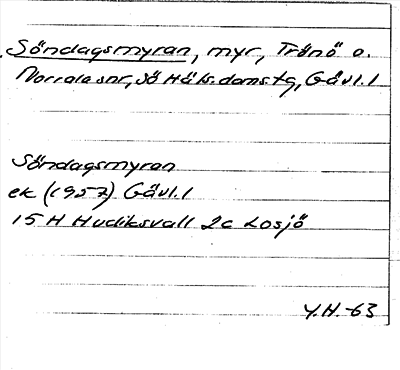 Söndagsmyran, myr, Trönö o.
Norrala snr, Sö Häls. doms. tg, Gävl. l
Söndagsmyran
ek (1957) Gävl. l
15 H Hudiksvall 2c Losjö
Y.H.-63